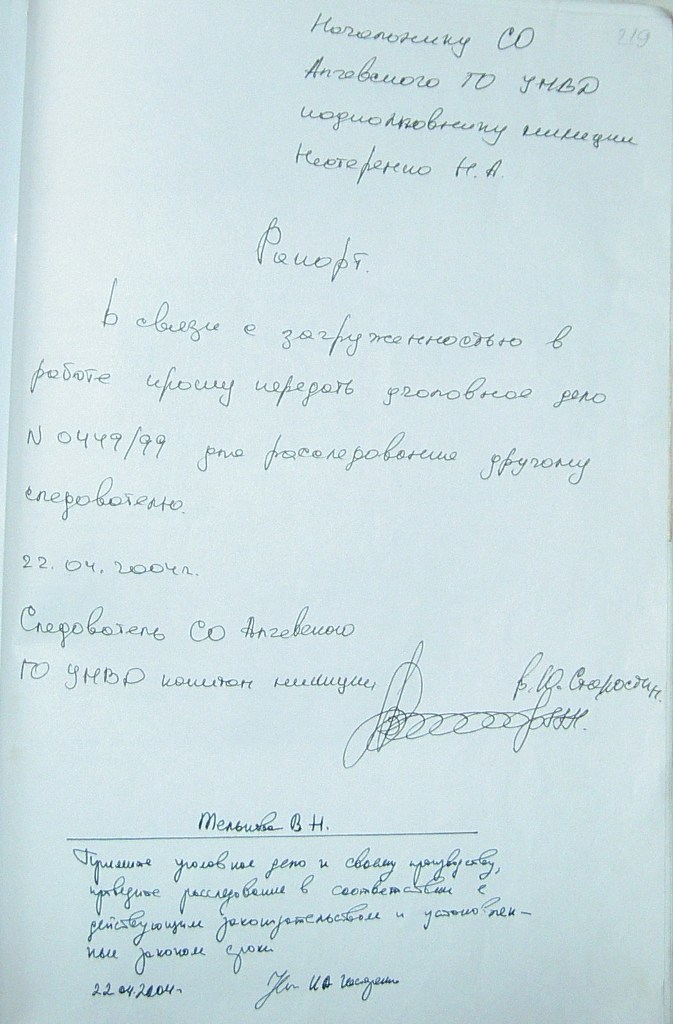 219
Начальнику СО
Алчевского ГО УНВД
подполковнику милиции
Нестеренко Н.А.
Рапорт.
В связи с загруженностью в
работе прошу передать уголовное дело
N 0449/99 для расследования другому
следователю.
22.04.2004г.
Следователь СО Алчевского
ГО УНВД капитан милиции В.Ю. Старостин.
В Н.
Примите уголовное дело к своему производству,
проведите расследование в соответствии с
действующим законодательством и установлен-
ные законом сроки
22.04.2004г. НА Нестеренко